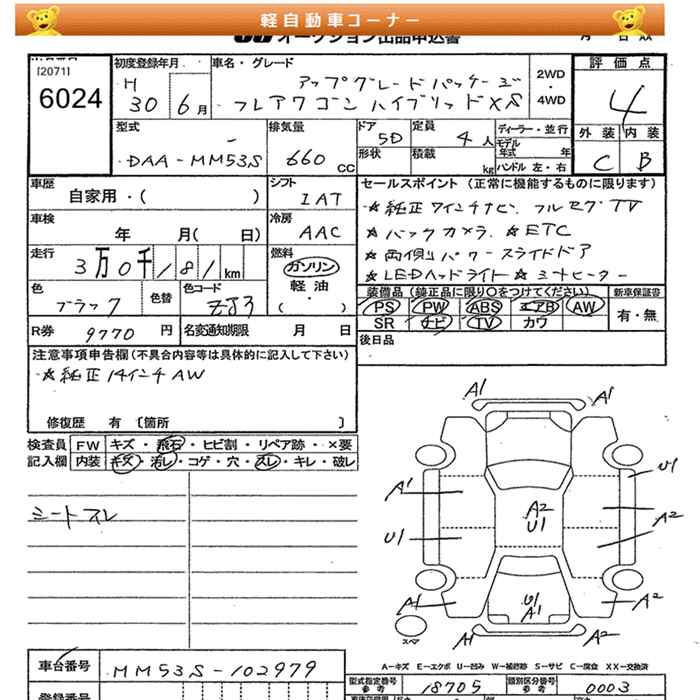 軽自動車コーナー
オークション出品申込書
[2071]
6024
初度登録年月
H 30 6月
車名・グレード
アップグレードパッケージ
フレアワゴンハイブリッドXS
2WD
・
4WD
評価点
4
外装 内装
C B
型式
DAA-MM53S
排気量
660 CC
ドア
5D
定員
4人
形状
積載
kg
ディーラー・並行
モデル年式 年
ハンドル 左・右
車歴
自家用・( )
シフト
IAT
車検
年 月( 日)
冷房
AAC
走行
3万0千181km
燃料
ガソリン
軽油
・
( )
色
ブラック
色替
色コード
ZJ3
R券 9770円
名変通知期限 月 日
セールスポイント (正常に機能するものに限ります)
★純正ワインチナビ、フルセグTV
★バックカメラ ★ETC
★両側パワースライドドア
★LEDヘッドライト ★シートヒーター
装備品 (純正品に限り○をつけてください)
PS PW ABS エアB AW
SR ナビ TV カワ
新車保証書
有・無
後日品
注意事項申告欄(不具合内容等は具体的に記入して下さい)
★純正14インチAW
修復歴 有 [箇所 ]
検査員 FW キズ・飛石・ヒビ割・リペア跡・×要
記入欄 内装 キズ・汚レ・コゲ・穴・スレ・キレ・破レ
シートスレ
A1 A1
A1 U1
A2 U1
A2
U1
A1 U1 A1 A2
スペア
A1 A2
A-キズ E-エクボ U-凹み W-補修跡 S-サビ C-腐食 XX-交換済
車台番号 MM53S-102979
型式指定番号 参考 18705
類別区分番号 参考 0003
登録番号